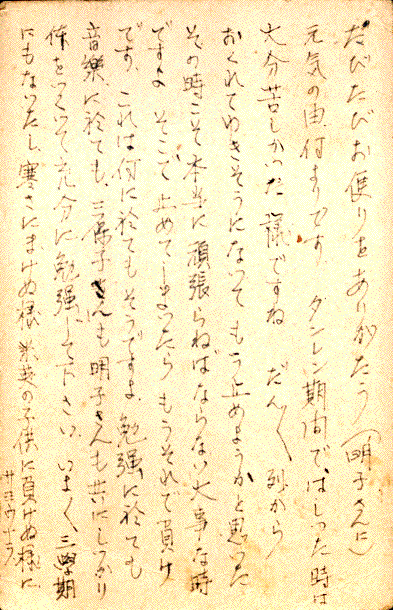 たびたびお便りをありがたう(明子さんに)
元気の由、何よりです。タンレン期間ではしつた時は
大分苦しかつた様ですね だん〱列から
おくれてゆきそうになつて もう止めようかと思つた
その時こそ本当に頑張らねばならない大事な時
ですよ そこで止めてしまつたら もうそれで負け
です、これは何に於てもそうですよ。勉強に於ても
音樂に於ても、三保子さんも明子さんも共にしつかり
体をつくつて充分に勉强して下さい。いよ〱三學期
にもなつたし、寒さにまけぬ様 米英の子供に負けぬ様に
サヨウナラ